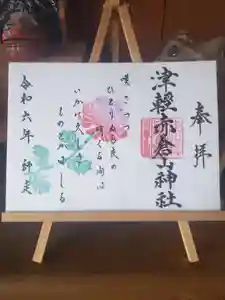 奉拝
津輕赤倉山神社
嘆きつつ
ひとりぬる夜の
明くる間は
いかに久しき
ものとかはしる
令和六年 師走